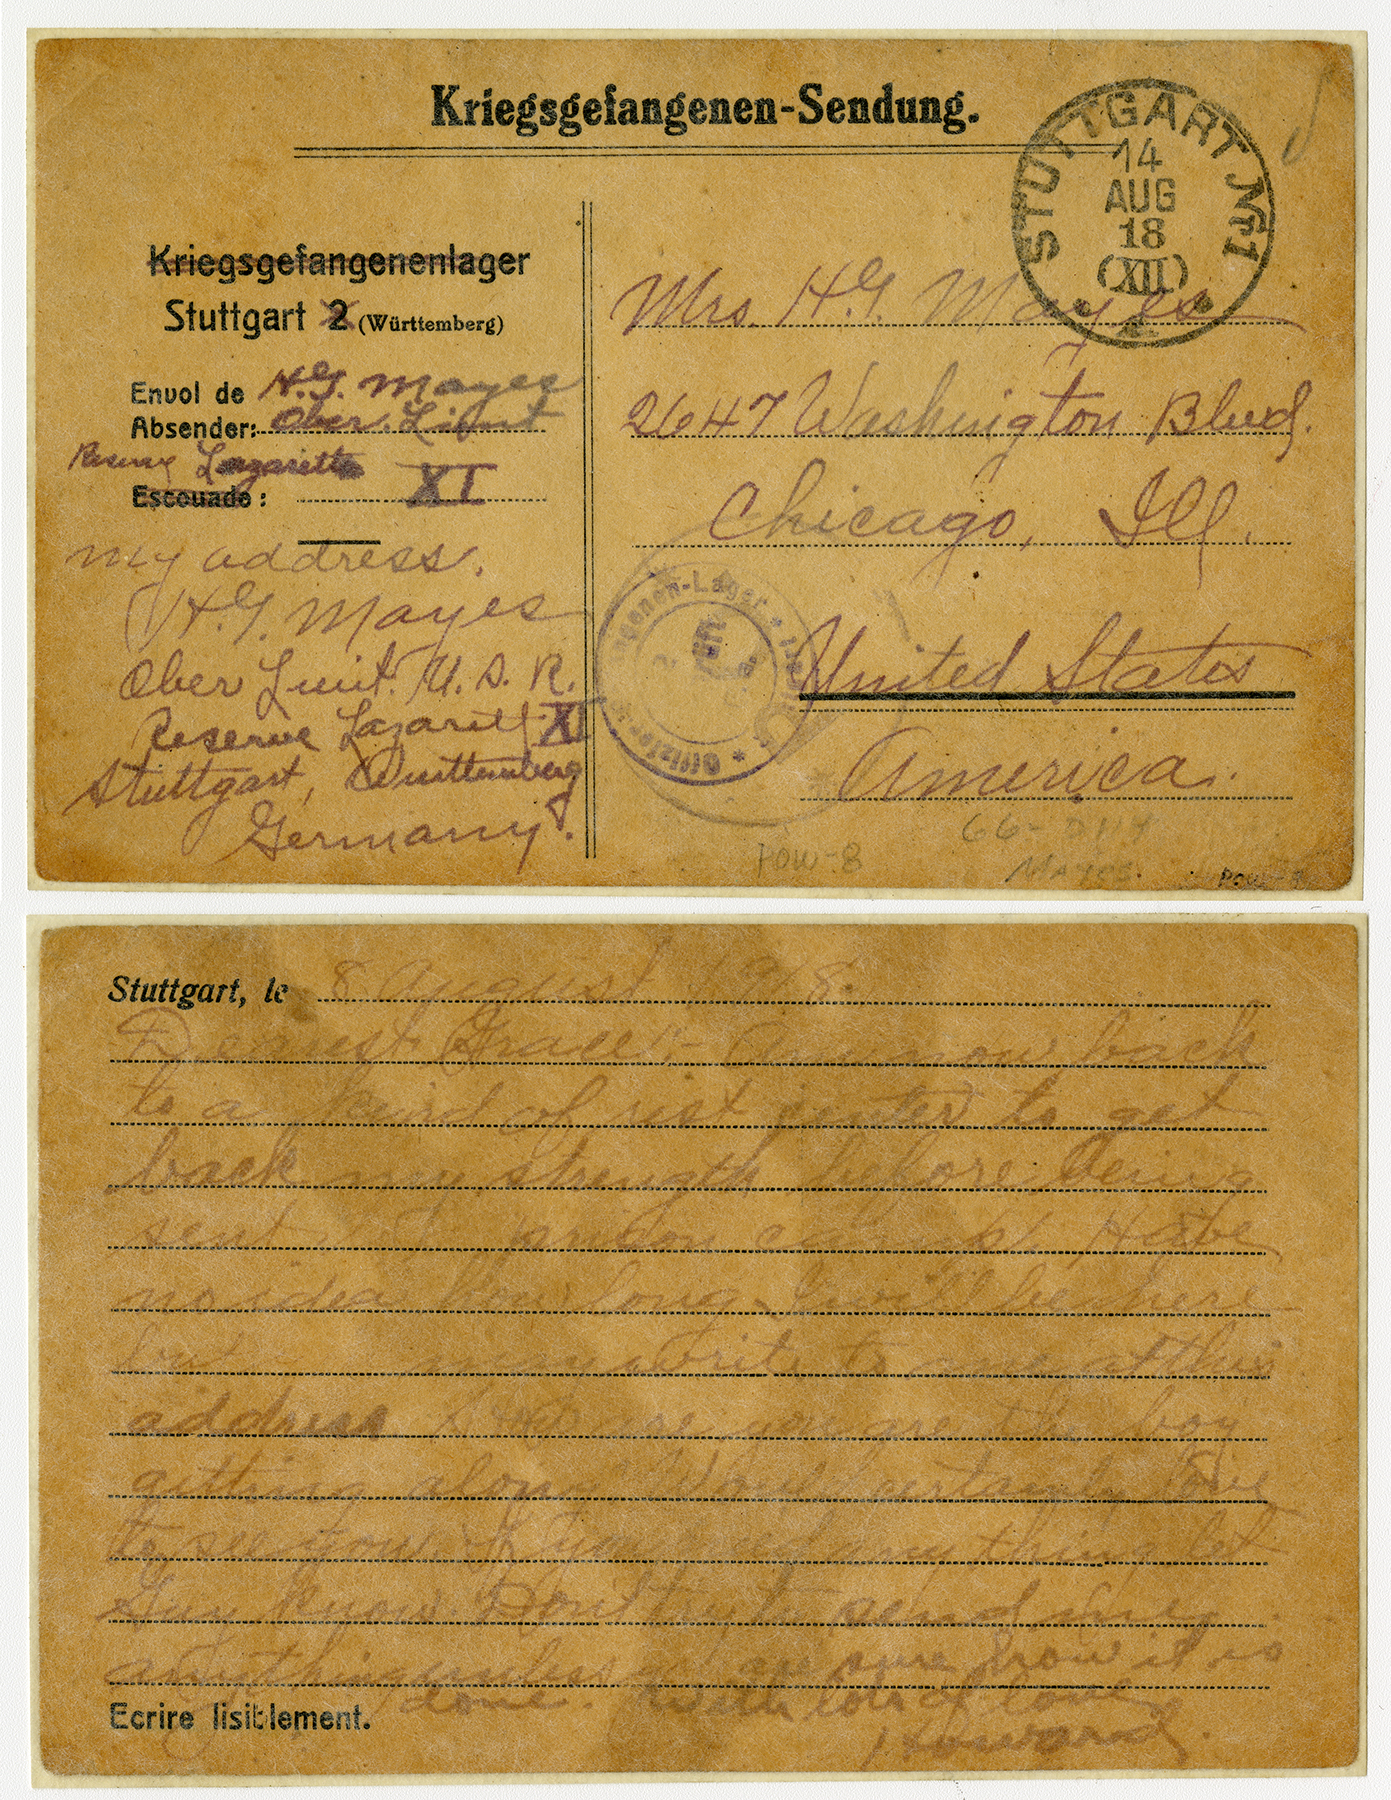 Kriegsgefangenen-Sendung.
STUTTGART Nr. 1
14
AUG
18
(XII)
Kriegsgefangenenlager
Stuttgart 2 (Württemberg)
Envoi de H.G. Mayes
Absender: Ober. Lieut
Reserve Lazarett
Escouade: XI
my address.
H.G. Mayes
Ober Lieut. U.S.R.
Reserve Lazarett XI
Stuttgart, Wurttemberg
Germany.
Mrs. H.G. Mayes
2647 Washington Blvd.
Chicago, Ill.
United States
America.
Lager
POW-8
66-
MAYES.
POW-8
Stuttgart, le 8 August 1918.
Dearest Grace:- Am now back
to a kind of rest center to get
back my strength before being
sent prison camp. Have
no idea how long I will be here
but may write to me at this
address. you are the boy
getting along. Would certainly love
to see you. If you need anything let
Guy know. Don't try to send me
anything unless you are sure how it is
done. With lots of love
Howard.
Ecrire lisiblement.